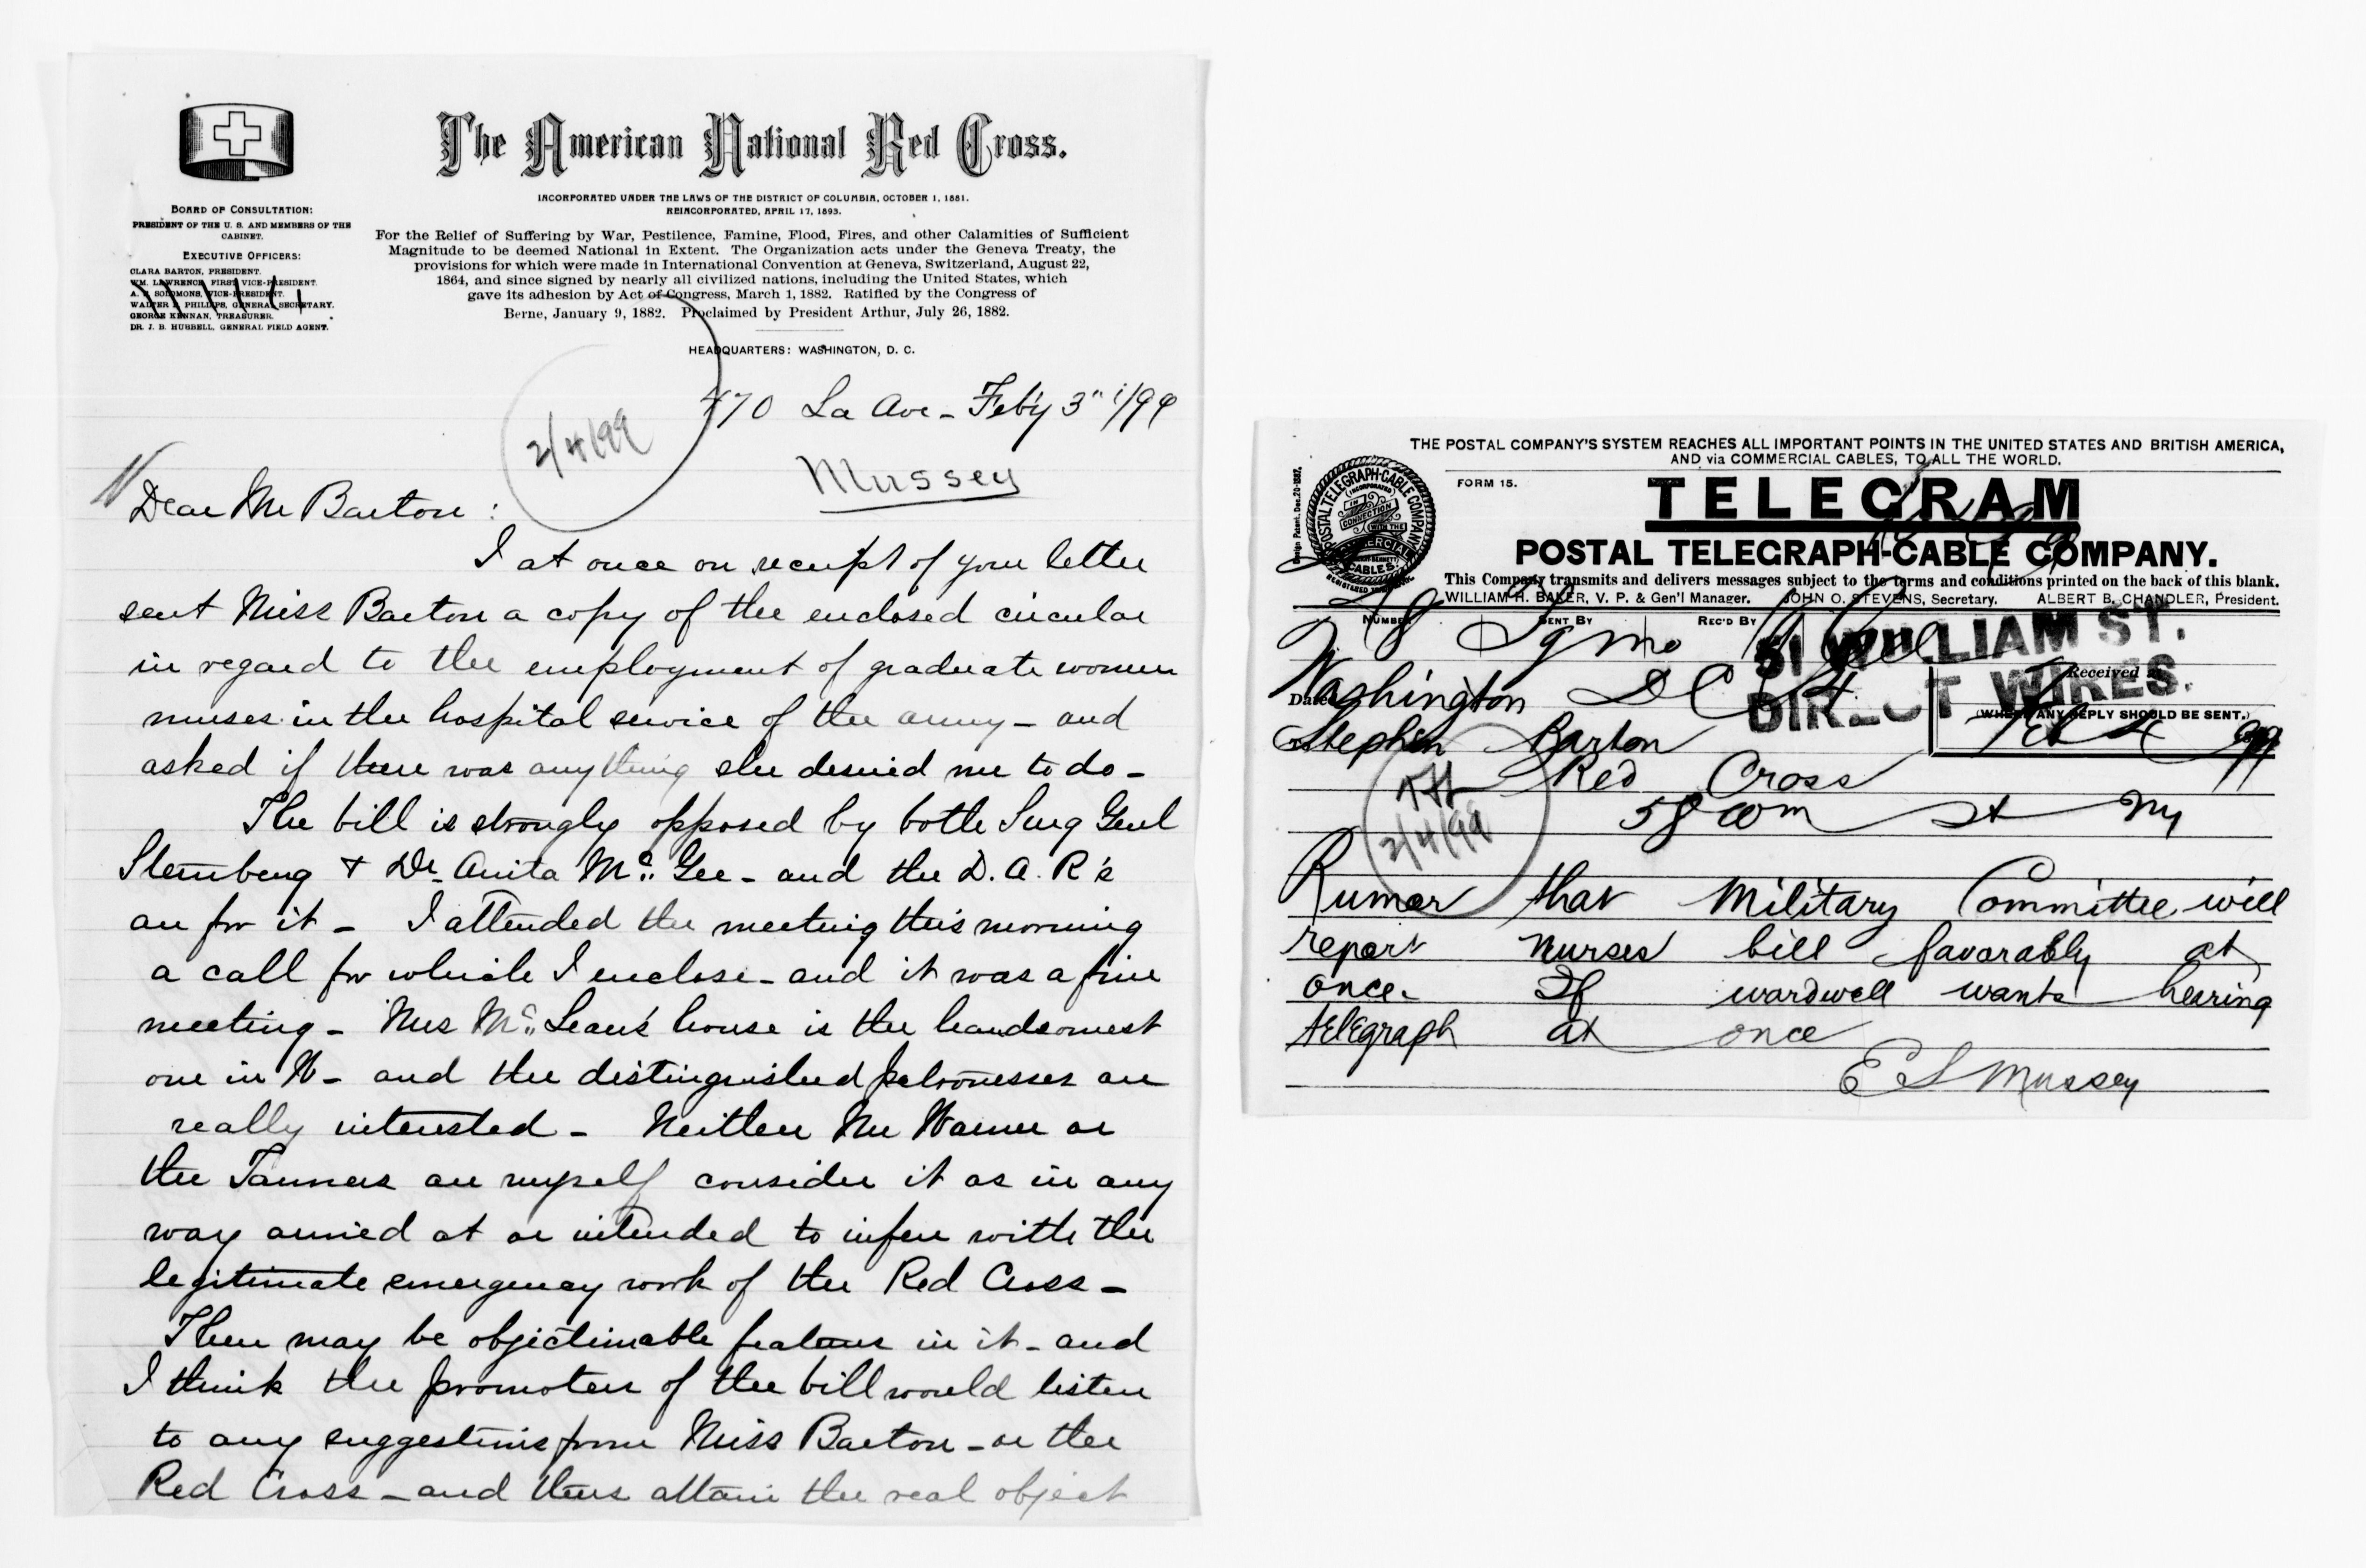 The American National Red Cross.
INCORPORATED UNDER THE LAWS OF THE DISTRICT OF COLUMBIA, OCTOBER 1, 1881.
REINCORPORATED, APRIL 17, 1893.
For the Relief of Suffering by War, Pestilence, Famine, Flood, Fires, and other Calamities of Sufficient
Magnitude to be deemed National in Extent. The Organization acts under the Geneva Treaty, the
provisions for which were made in International Convention at Geneva, Switzerland, August 22,
1864, and since signed by nearly all civilized nations, including the United States, which
gave its adhesion by Act of Congress, March 1, 1882. Ratified by the Congress of
Berne, January 9, 1882. Proclaimed by President Arthur, July 26, 1882.
HEADQUARTERS: WASHINGTON, D. C.
BOARD OF CONSULTATION:
PRESIDENT OF THE U. S. AND MEMBERS OF THE
CABINET.
EXECUTIVE OFFICERS:
CLARA BARTON, PRESIDENT.
WM. LAWRENCE, FIRST VICE-PRESIDENT.
A. S. SOLOMONS, VICE-PRESIDENT.
WALTER P. PHILLIPS, GENERAL SECRETARY.
GEORGE KENNAN, TREASURER.
DR. J. B. HUBBELL, GENERAL FIELD AGENT.
470 La Ave - Feb'y 3" /99
2/4/99
Mussey
Dear Mr Barton :
I at once on receipt of your letter
sent Miss Barton a copy of the enclosed circular
in regard to the employment of graduate women
nurses in the hospital service of the army - and
asked if there was anything else desired me to do -
The bill is strongly opposed by both Surg Genl
Sternberg & Dr. Anita Mc Gee - and the D. A. R's
are for it - I attended the meeting this morning
a call for which I enclose - and it was a fine
meeting - Mrs Mc Lean's house is the handsomest
one in W - and the distinguished patronesses are
really interested - Neither Mr Warner or
the Tanners or myself consider it as in any
way aimed at or intended to infere with the
legitimate emergency work of the Red Cross -
There may be objectionable features in it - and
I think the promoters of the bill would listen
to any suggestions from Miss Barton - or the
Red Cross - and thus attain the real object
THE POSTAL COMPANY'S SYSTEM REACHES ALL IMPORTANT POINTS IN THE UNITED STATES AND BRITISH AMERICA,
AND via COMMERCIAL CABLES, TO ALL THE WORLD.
FORM 15.
TELEGRAM
POSTAL TELEGRAPH-CABLE COMPANY.
This Company transmits and delivers messages subject to the terms and conditions printed on the back of this blank.
WILLIAM H. BAKER, V. P. & Gen'l Manager. JOHN O. STEVENS, Secretary. ALBERT B. CHANDLER, President.
NUMBER SENT BY REC'D BY
51 WILLIAM ST.
DIRECT WIRES.
Received
(WHERE ANY REPLY SHOULD BE SENT.)
Washington D C
Feb 4 99
Stephen Barton
Red Cross
58 Wm St Ny
2/4/99
Rumor that Military Committee will
report nurses bill favorably at
once. If wardwell wants hearing
telegraph at once
E S Mussey